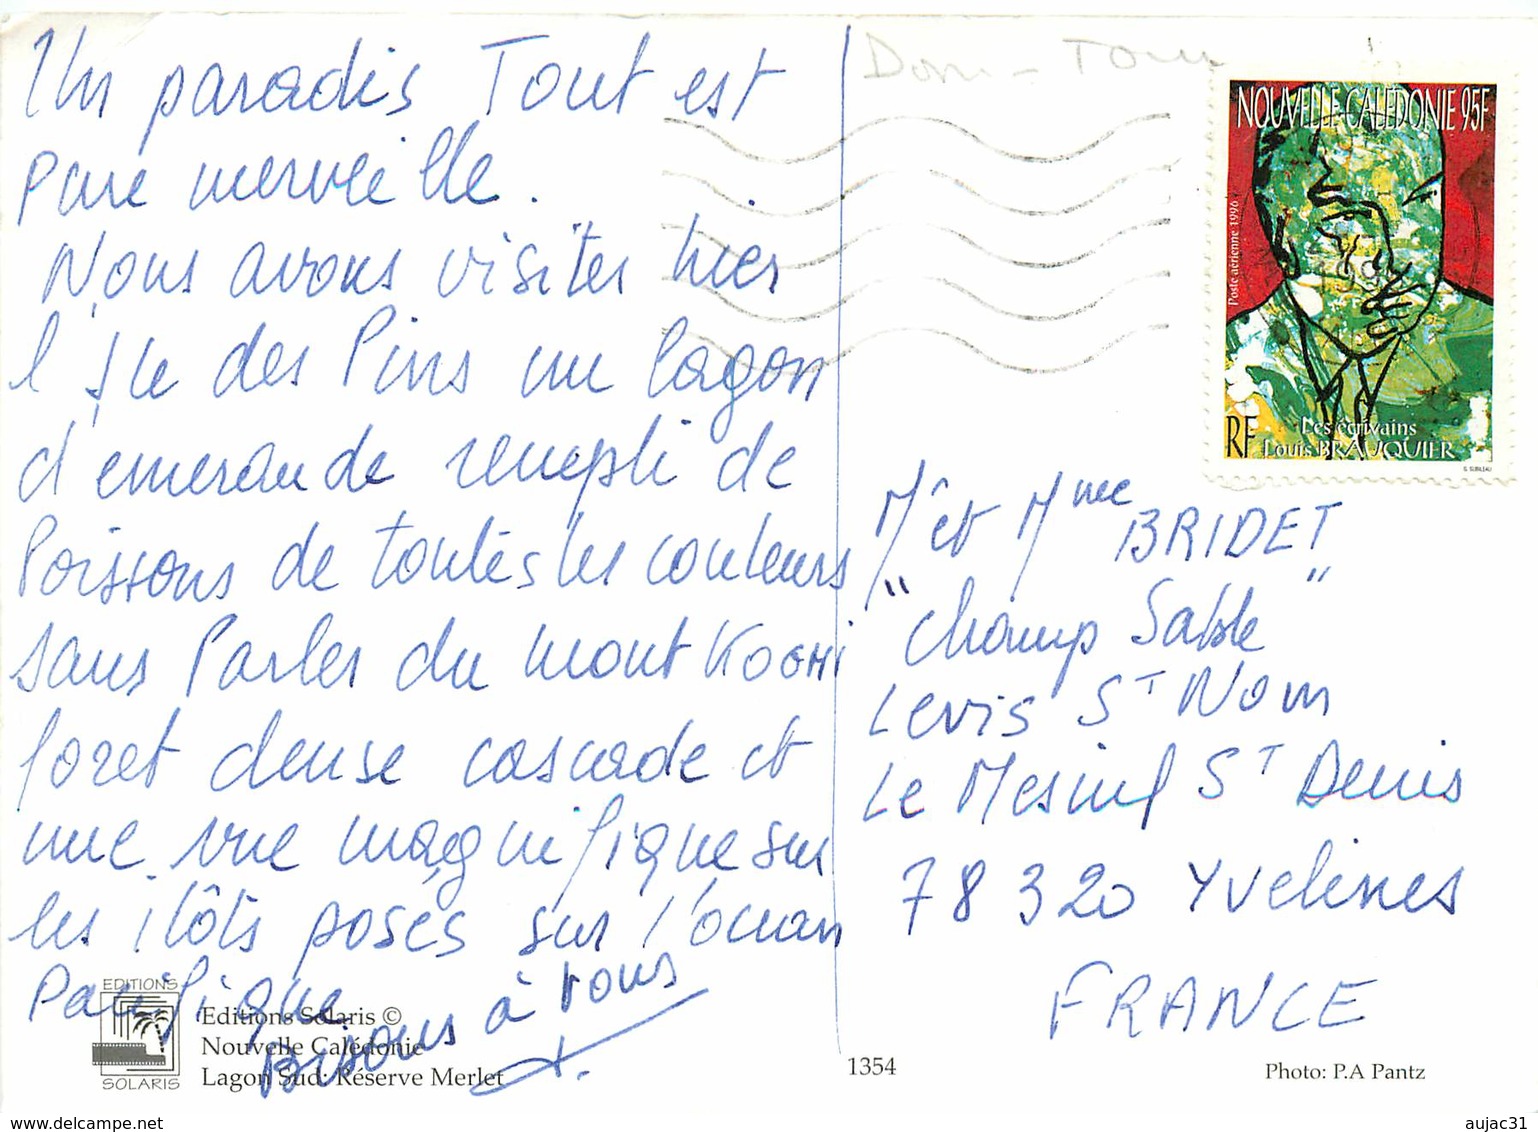 Un paradis Tout est
pure merveille.
Nous avons visiter hier
l'Ile des Pins un lagon
d'emeraude rempli de
Poissons de toutes les couleurs
sans Parler du mont KOGHi
foret dense cascade et
une vue magnifique sur
les ilôts posés sur l'océan
Pacifique
Bisous à vous
Dom-Tom
NOUVELLE-CALÉDONIE 95F
Poste aérienne 1996
RF
Les écrivains
Louis BRAUQUIER
G. SUBILEAU
M et Mme BRIDET
"Champ Sable"
Levis St Nom
Le Mesnil St Denis
78 320 Yvelines
FRANCE
EDITIONS
SOLARIS
Editions Solaris ©
Nouvelle Calédonie
Lagon Sud: Réserve Merlet
1354
Photo: P.A Pantz
www.delcampe.net
aujac31